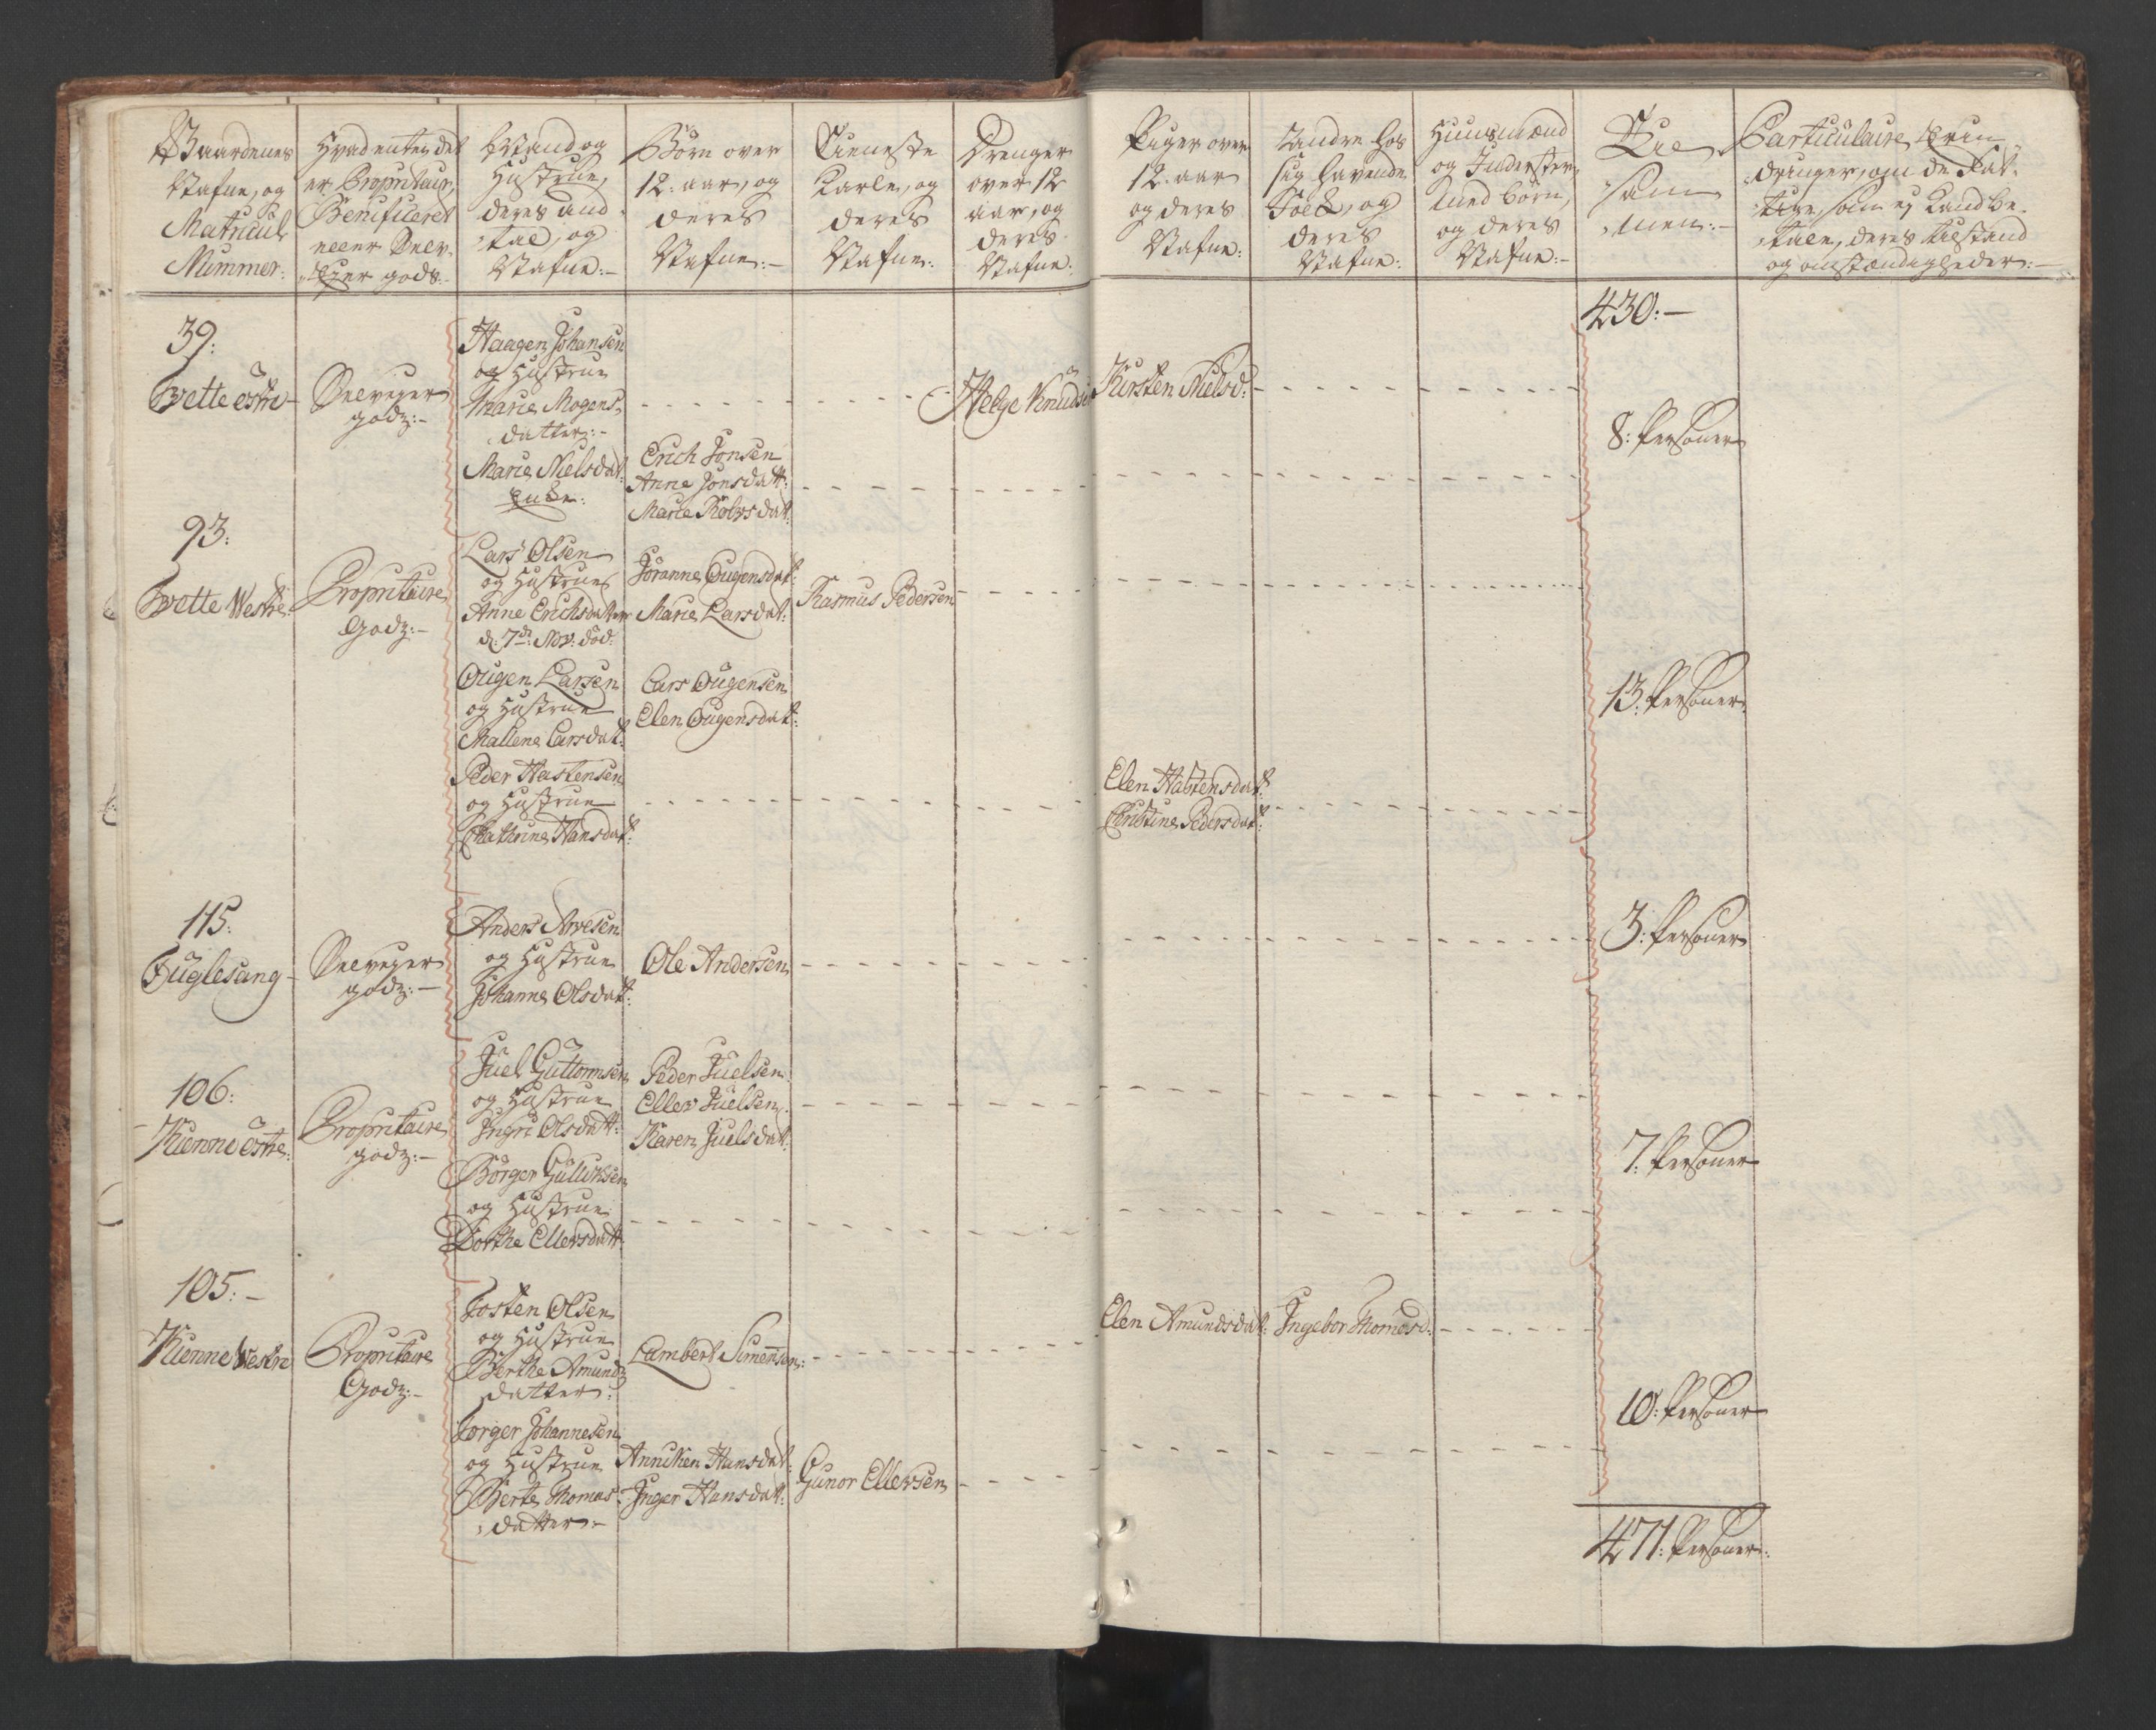 Gaardenes
Nafne, og
Matricul
Nummer:
Hvad enten det
er Propritair,
Benificeret
eller Selv-
Eyer gods:-
Mand og
Hustrue,
deres and-
tal, og
Nafne:-
Börn over
12: aar, og
deres
Nafne:-
Tieneste
Karle, og
deres
Nafne:
Drenger
over 12
aar, og
deres
Nafne:
Piger over
12: aar
og deres
Nafne:
Andre hos
sig havende
Folk, og
deres
Nafne:
Huusmænd
og Inderster,
med börn,
og deres
Nafne:-
Til
sam
men:-
Particulaire Erin-
dringer, om de Fat-
tige, som ej kand be-
tale, deres tilstand
og omstændigheder:-
430:-
39:
Tvette östre
Selveyer
godz:-
Haagen Johansen
og Hustrue
Marie Mogens-
datter:-
Helge Knudsen
Kirsten Nielsd:
8: Personer
Marie Nielsdat:
Enke:
Erich Jonsen
Anne Jonsdatt:
Marie Rolvsdat:
93:
Tvette Westre
Propritaire
Godz:-
Lars Olsen
og Hustrue
Anne Erichsdatter
d: 7de: Nov: död:
Joranne Ougensdat:
Marie Larsdat:
Rasmus Pedersen
13: Personer
Ougen Larsen
og Hustrue
Mallene Larsdat:
Lars Ougensen
Elen Ougensdat:
Peder Hastensen
og Hustrue
Chathrine Hansdat:
Elen Hastensdat:
Christine Pedersdat:
115:
Fuglesang
Selveyer
godz:-
Anders Arvesen
og Hustrue
Johanne Olsdat:
Ole Andersen
3: Personer
106:
Kienne östre:
Propritaire
godz:-
Juel Guttormsen
og Hustrue
Ingri Olsdatt:
Peder Juelsen
Ellev Juelsen
Karen Juelsdat:
7: Personer
Börger Gulliksen
og Hustrue
Dorthe Ellevsdatt:
105:-
Kienne Westre
Propritaire
Godz:-
Josten Olsen
og Hustrue
Berthe Amunds
datter:
Lambert Simensen:
Elen Amundsdat:
Ingebor Thomæsd:
10: Personer
Jorger Johannesen
og Hustrue
Berte Thomas-
datter:-
Anniken Hansdat:
Inger Hansdat:
Gunor Ellevsen
471: Personer: